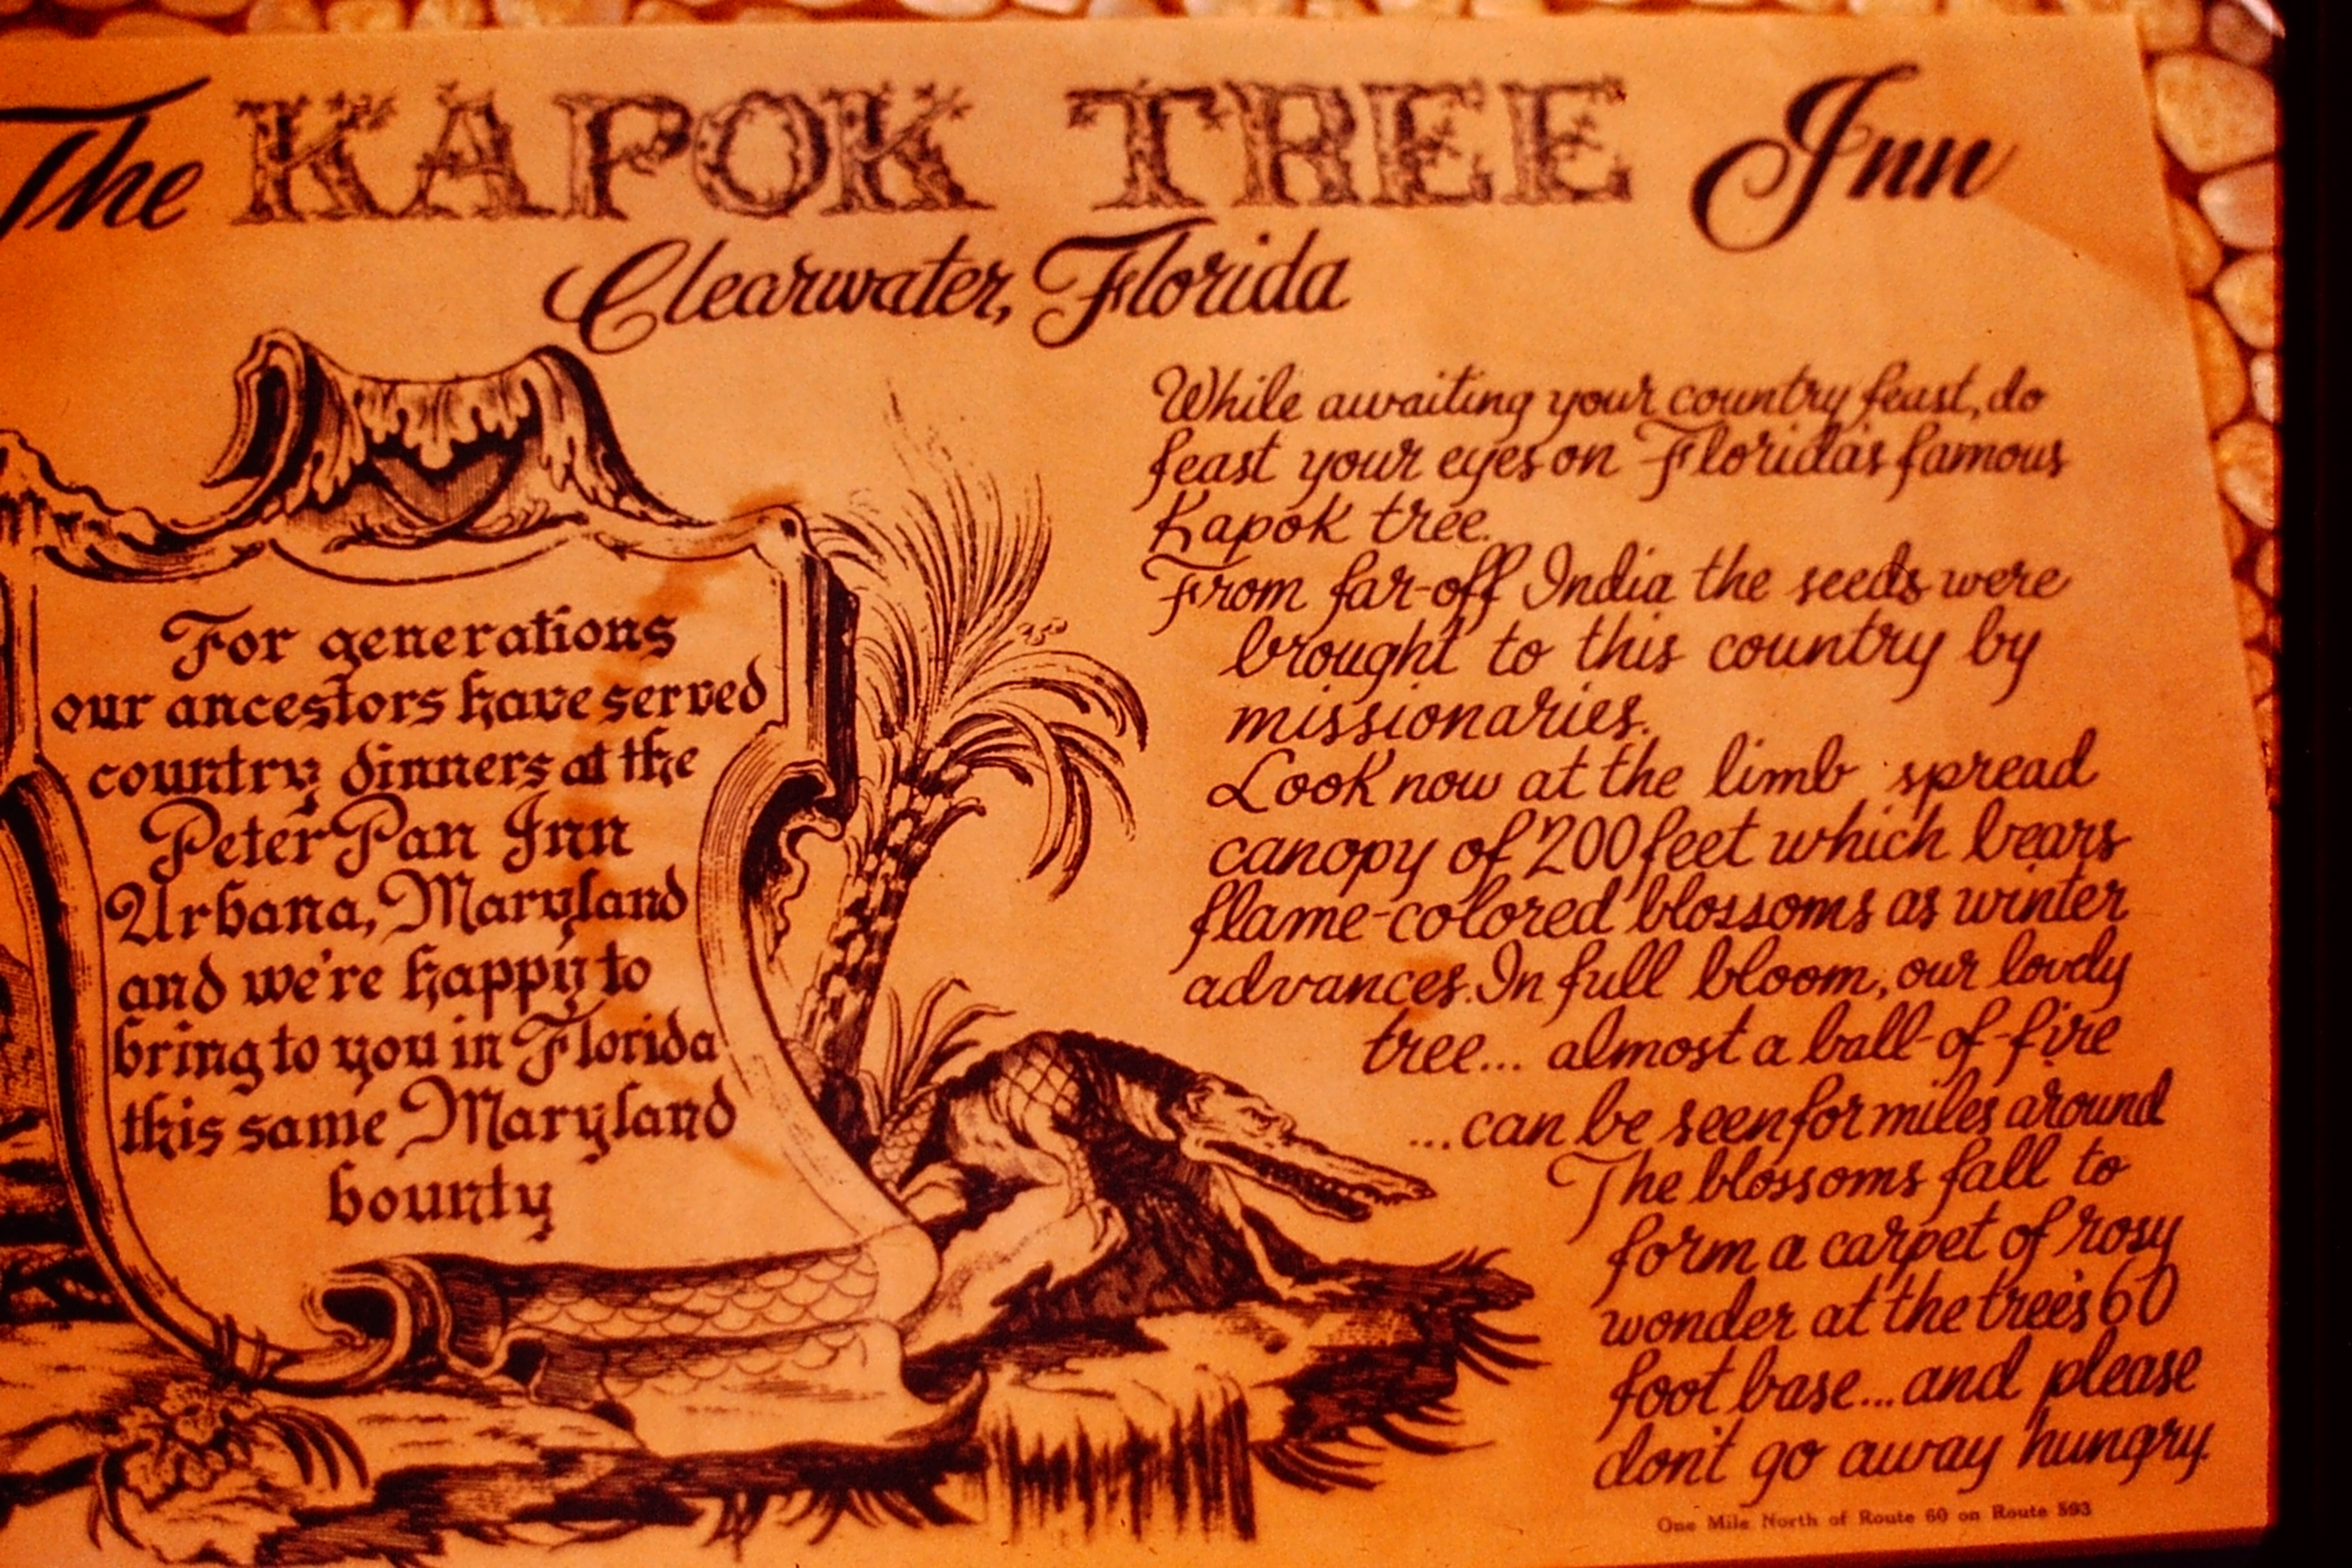 The KAPOK TREE Inn
Clearwater, Florida
For generations
our ancestors have served
country dinners at the
Peter Pan Inn
Urbana, Maryland
and we're happy to
bring to you in Florida
this same Maryland
bounty
While awaiting your country feast, do
feast your eyes on Florida's famous
Kapok tree.
From far-off India the seeds were
brought to this country by
missionaries.
Look now at the limb spread
canopy of 200 feet which bears
flame-colored blossoms as winter
advances. In full bloom, our lovely
tree... almost a ball-of-fire
...can be seen for miles around
The blossoms fall to
form a carpet of rosy
wonder at the tree's 60
foot base...and please
don't go away hungry.
One Mile North of Route 60 on Route 593